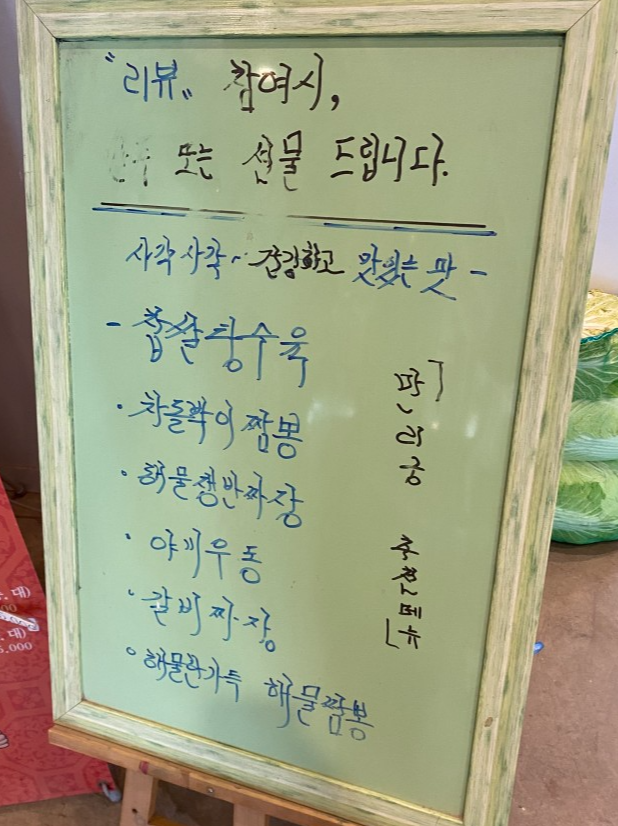 "리뷰" 참여시,
또는 선물 드립니다.
사각사각~ 건강하고 맛있는 맛 -
- 찹쌀탕수육
· 차돌짬뽕
· 해물쟁반짜장
· 야끼우동
· 갈비짜장
· 해물한가득 해물짬뽕
「만리궁 추천메뉴」
대)
대)
5,000